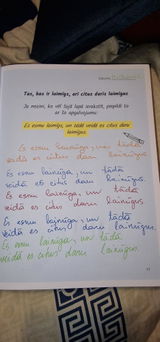 Tas, kas ir laimīgs, arī citus daris laimīgus
Ja
es to apgalvojumu:
Es esmu laimīgs, un tādā veidā es citus daru
laimīgus.
Es esmu laimīga, un tādā
veidā es citus daru laimīgus.
Es esmu laimīga, un tādā
veidā es citus daru laimīgus.
Es esmu laimīga, un tādā
veidā es citus daru laimīgus.
Es esmu laimīga, un tādā
veidā es citus daru laimīgus.
Es esmu laimīga, un tādā
veidā es citus daru laimīgus.